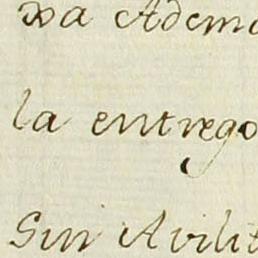 xa Adema
la entrego
Sin Avilit